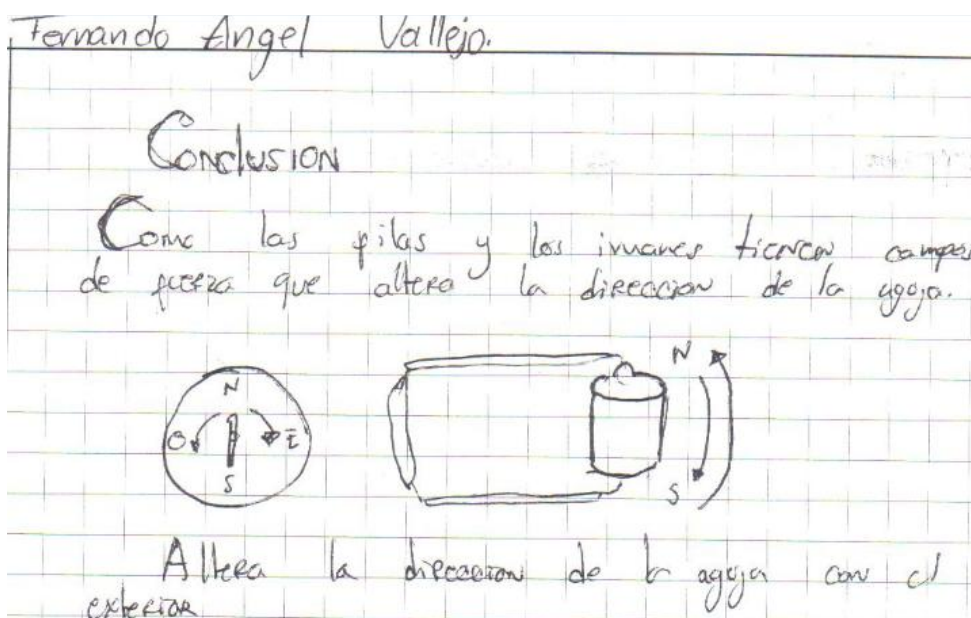 Fernando Angel Vallejo.
Conclusion
Como las pilas y los imanes tienen campos
de fuerza que altera la direccion de la aguja.
N
O E
S
N
S
Altera la direccion de la aguja con el
exterior